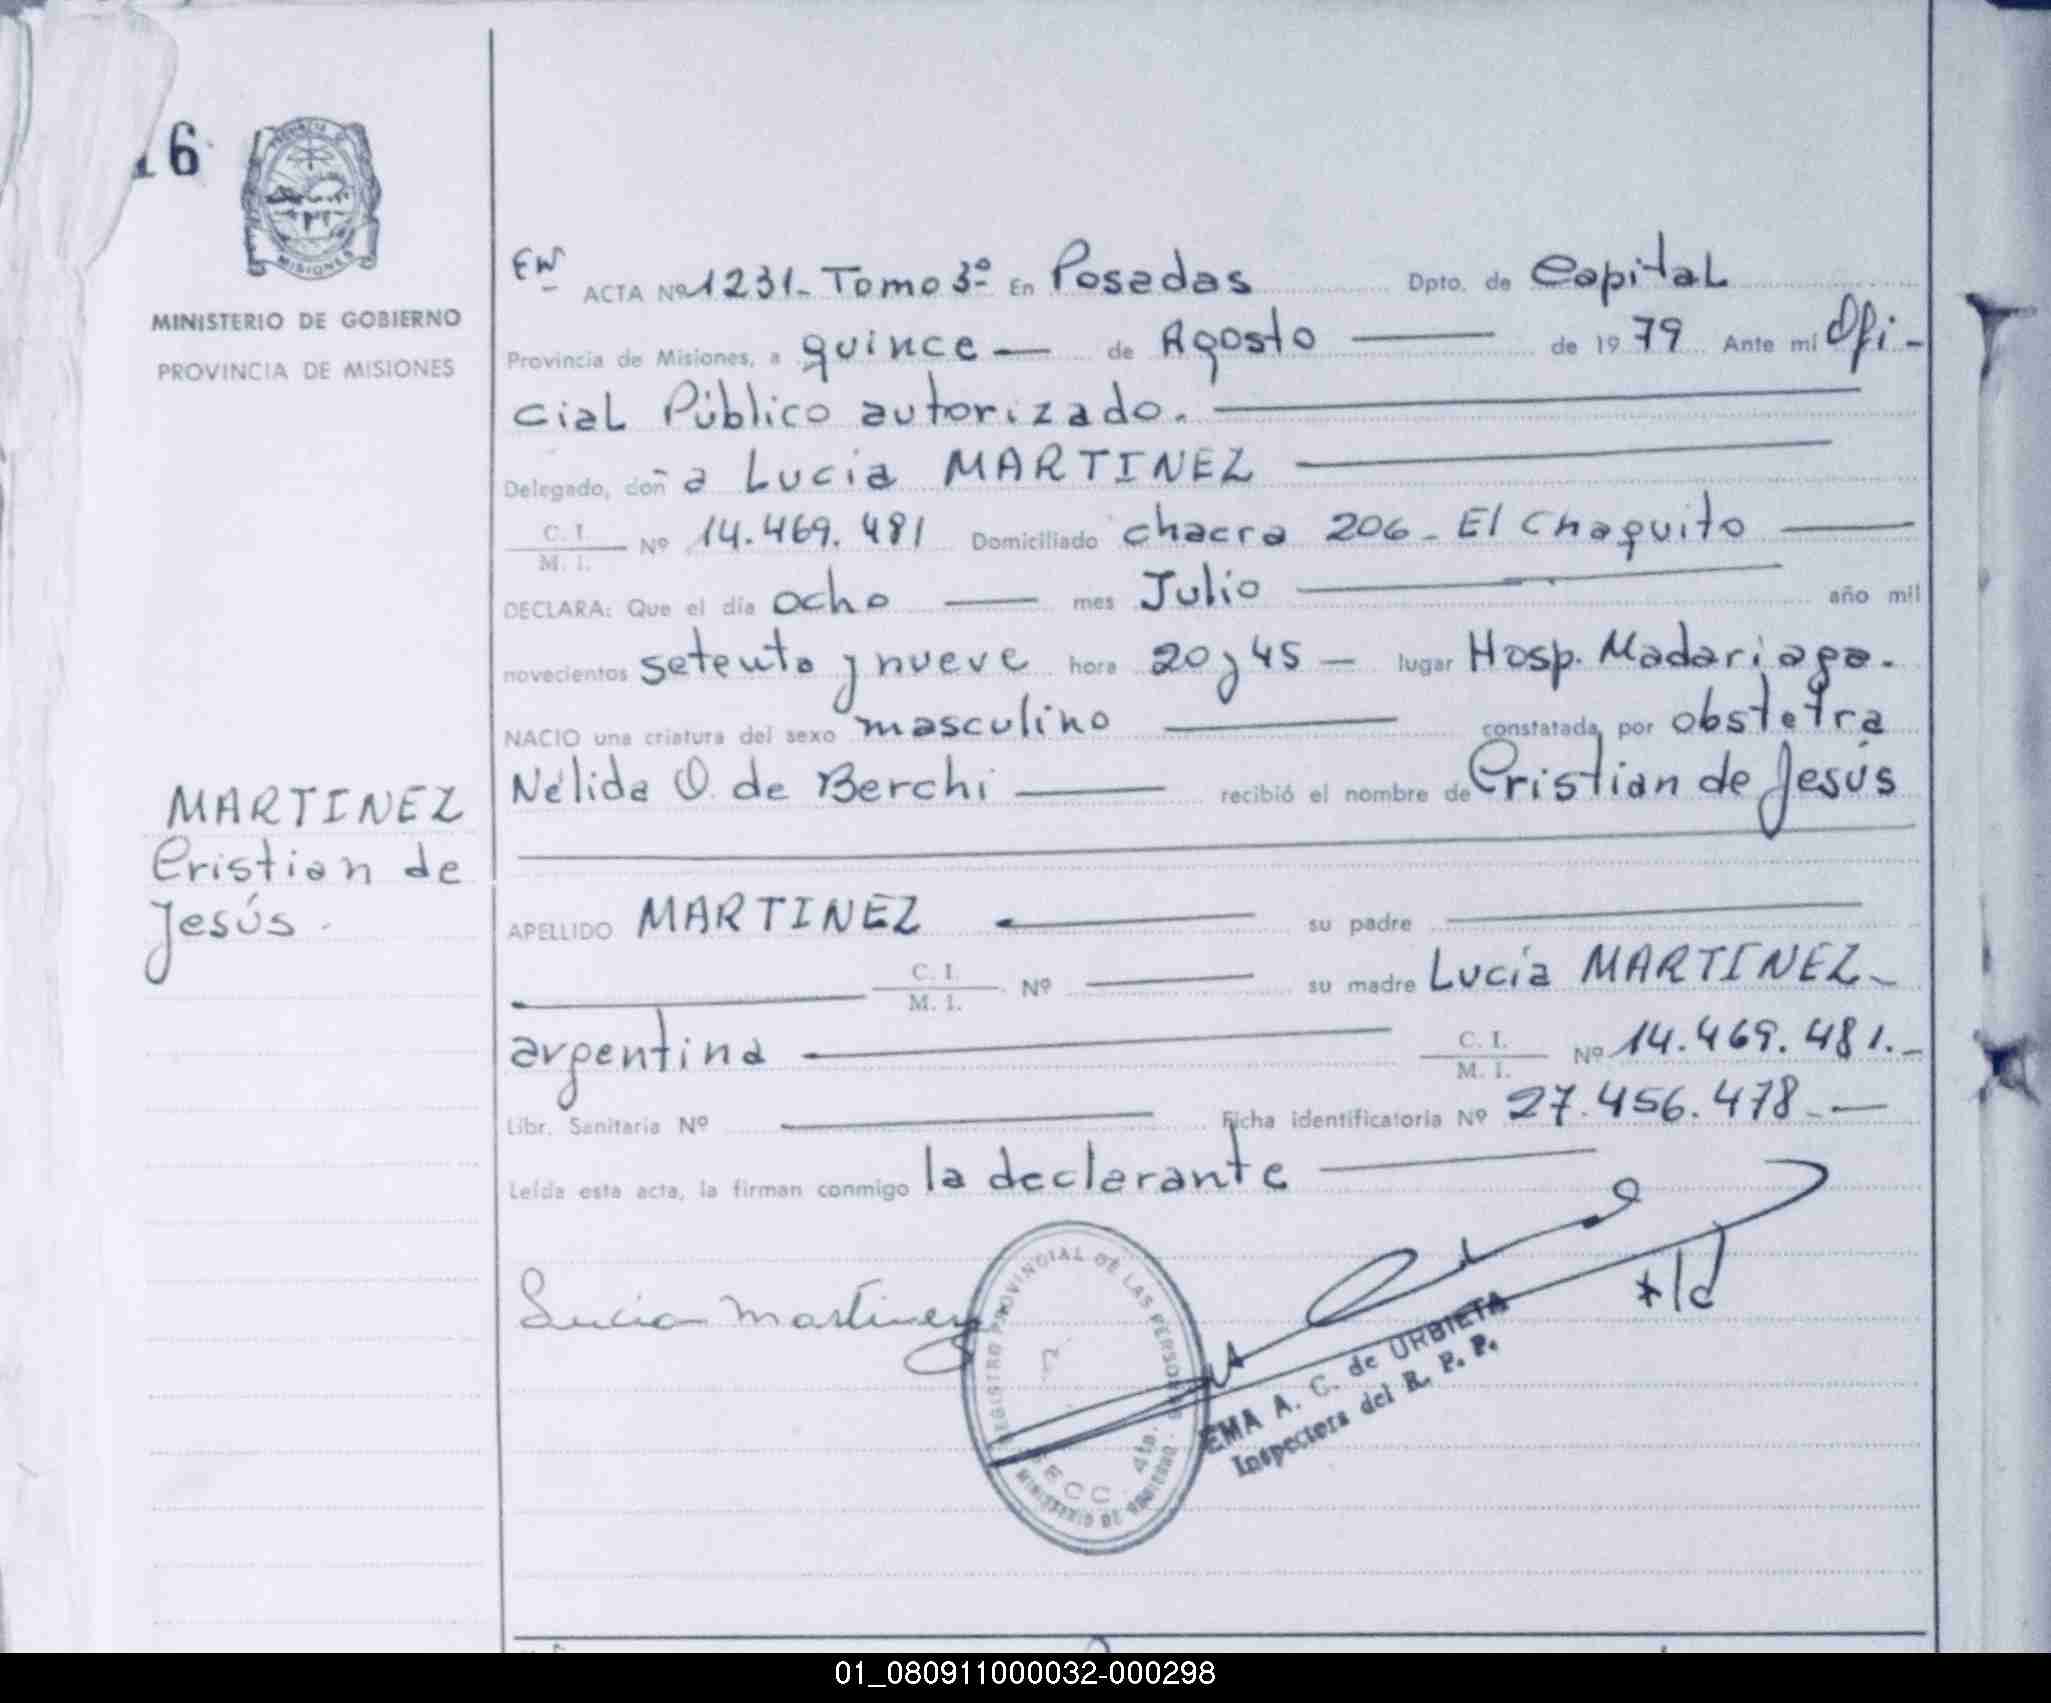 16
MISIONES
MINISTERIO DE GOBIERNO
PROVINCIA DE MISIONES
MARTINEZ
Cristian de
Jesús.
ACTA Nº 1231- Tomo 3º En Posadas Dpto. de Capital
Provincia de Misiones, a quince — de Agosto — de 1979 Ante mi Ofi-
cial Público autorizado.
Delegado, doña Lucia MARTINEZ
C. I.
M. I.
Nº 14.469.481 Domiciliado chacra 206 - El Chaquito
DECLARA: Que el día ocho — mes Julio — año mil
novecientos setenta y nueve hora 20 y 45 — lugar Hosp. Madariaga.
NACIO una criatura del sexo masculino — constatada por obstetra
Nélida O. de Berchi — recibió el nombre de Cristian de Jesús
APELLIDO MARTINEZ — su padre —
C. I.
M. I.
Nº — su madre Lucía MARTINEZ-
argentina — C. I.
M. I.
Nº 14.469.481.-
Libr. Sanitaria Nº — Ficha identificatoria Nº 27.456.478.-
Leída esta acta, la firman conmigo la declarante
Lucia Martinez
REGISTRO PROVINCIAL DE LAS PERSONAS
SECC. 4ta.
MINISTERIO DE GOBIERNO
EMA A. C. de URBIETA
Inspectora del R. P. P.
01_080911000032-000298